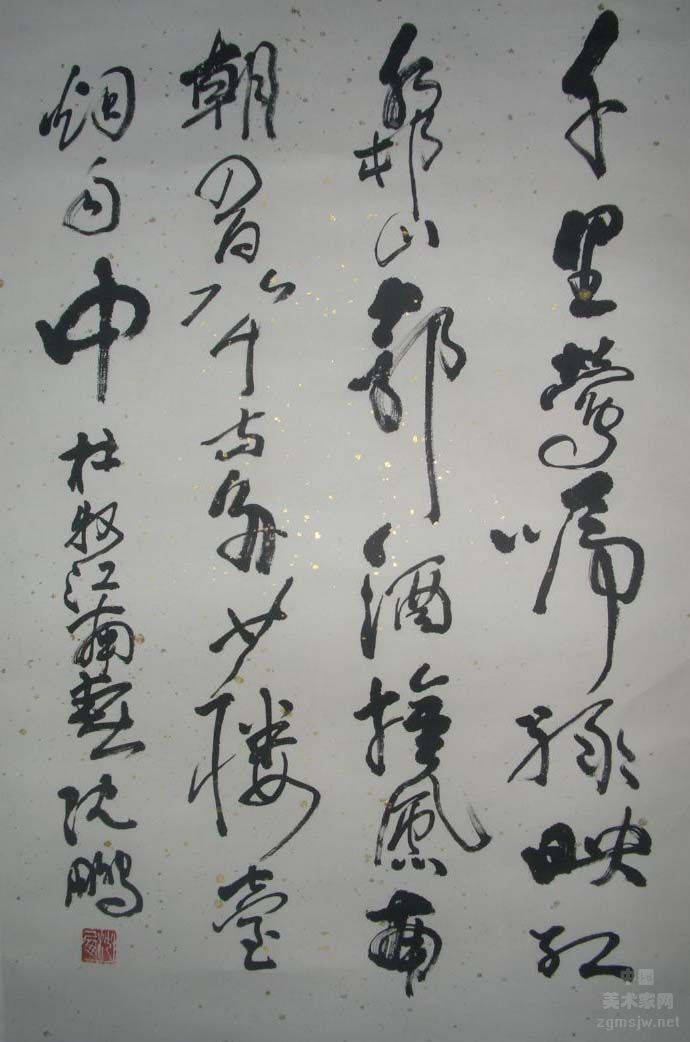 千里鶯啼綠映紅
水村山郭酒旗風南
朝四百八十寺多少樓臺
烟雨中 杜牧江南春 沈鵬
中国
美术家网
zgmsjw.net